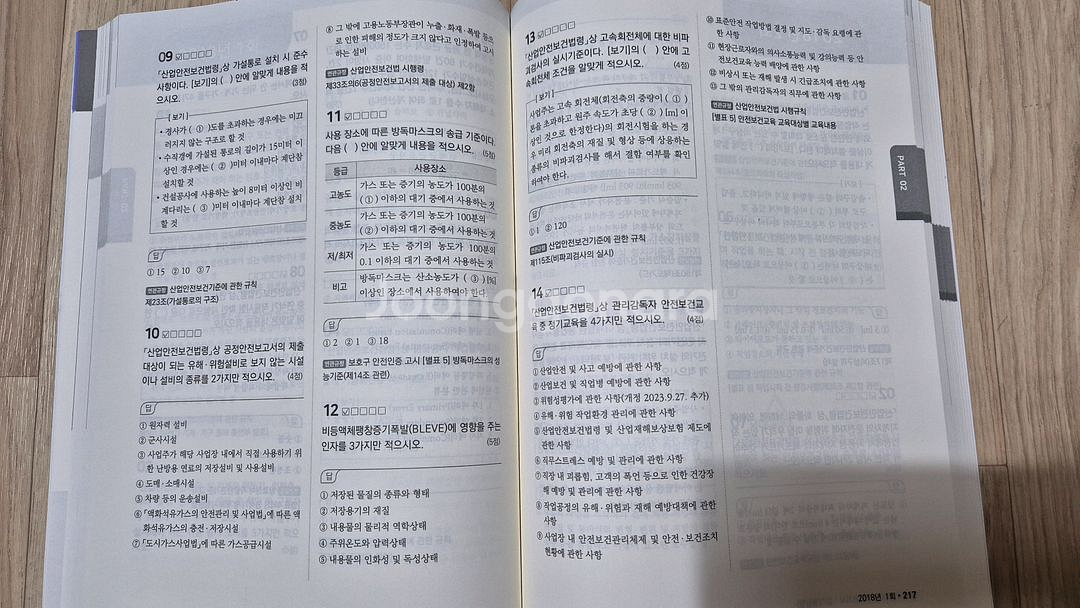 09 ☑□□□□
「산업안전보건법령」상 가설통로 설치 시 준수
사항이다. [보기]의 (   ) 안에 알맞게 내용을 적
으시오. (3점)
[보기]
• 경사가 ( ① )도를 초과하는 경우에는 미끄
러지지 않는 구조로 할 것
• 수직갱에 가설된 통로의 길이가 15미터 이
상인 경우에는 ( ② )미터 이내마다 계단참
설치할 것
• 건설공사에 사용하는 높이 8미터 이상인 비
계다리는 ( ③ )미터 이내마다 계단참 설치
할 것
답
① 15 ② 10 ③ 7
연관규정 산업안전보건기준에 관한 규칙
제23조(가설통로의 구조)
10 ☑□□□□
「산업안전보건법령」상 공정안전보고서의 제출
대상이 되는 유해·위험설비로 보지 않는 시설
이나 설비의 종류를 2가지만 적으시오. (4점)
답
① 원자력 설비
② 군사시설
③ 사업주가 해당 사업장 내에서 직접 사용하기 위
한 난방용 연료의 저장설비 및 사용설비
④ 도매·소매시설
⑤ 차량 등의 운송설비
⑥ 「액화석유가스의 안전관리 및 사업법」에 따른 액
화석유가스의 충전·저장시설
⑦ 「도시가스사업법」에 따른 가스공급시설
⑧ 그 밖에 고용노동부장관이 누출·화재·폭발 등으
로 인한 피해의 정도가 크지 않다고 인정하여 고시
하는 설비
연관규정 산업안전보건법 시행령
제33조의6(공정안전보고서의 제출 대상) 제2항
11 ☑□□□□
사용 장소에 따른 방독마스크의 송급 기준이다.
다음 (   ) 안에 알맞게 내용을 적으시오. (5점)
등급 사용장소
고농도 가스 또는 증기의 농도가 100분의
( ① ) 이하의 대기 중에서 사용하는 것
중농도 가스 또는 증기의 농도가 100분의
( ② ) 이하의 대기 중에서 사용하는 것
저/최저 가스 또는 증기의 농도가 100분의
0.1 이하의 대기 중에서 사용하는 것
비고 방독마스크는 산소농도가 ( ③ )[%]
이상인 장소에서 사용하여야 한다.
답
① 2 ② 1 ③ 18
연관규정 보호구 안전인증 고시 [별표 5] 방독마스크의 성
능기준(제14조 관련)
12 ☑□□□□
비등액체팽창증기폭발(BLEVE)에 영향을 주는
인자를 3가지만 적으시오. (5점)
답
① 저장된 물질의 종류와 형태
② 저장용기의 재질
③ 내용물의 물리적 역학상태
④ 주위온도와 압력상태
⑤ 내용물의 인화성 및 독성상태
13 ☑□□□□
「산업안전보건법령」상 고속회전체에 대한 비파
괴검사의 실시기준이다. [보기]의 (   ) 안에 고
속회전체 조건을 알맞게 적으시오. (4점)
[보기]
사업주는 고속 회전체(회전축의 중량이 ( ① )
톤을 초과하고 원주 속도가 초당 ( ② )[m] 이
상인 것으로 한정한다)의 회전시험을 하는 경
우 미리 회전축의 재질 및 형상 등에 상응하는
종류의 비파괴검사를 해서 결함 여부를 확인
하여야 한다.
답
① 1 ② 120
연관규정 산업안전보건기준에 관한 규칙
제115조(비파괴검사의 실시)
14 ☑□□□□
「산업안전보건법령」상 관리감독자 안전보건교
육 중 정기교육을 4가지만 적으시오. (4점)
답
① 산업안전 및 사고 예방에 관한 사항
② 산업보건 및 직업병 예방에 관한 사항
③ 위험성평가에 관한 사항(개정 2023.9.27. 추가)
④ 유해·위험 작업환경 관리에 관한 사항
⑤ 산업안전보건법령 및 산업재해보상보험 제도에
관한 사항
⑥ 직무스트레스 예방 및 관리에 관한 사항
⑦ 직장 내 괴롭힘, 고객의 폭언 등으로 인한 건강장
해 예방 및 관리에 관한 사항
⑧ 작업공정의 유해·위험과 재해 예방대책에 관한
사항
⑨ 사업장 내 안전보건관리체제 및 안전·보건조치
현황에 관한 사항
⑩ 표준안전 작업방법 결정 및 지도·감독 요령에 관
한 사항
⑪ 현장근로자와의 의사소통능력 및 강의능력 등 안
전보건교육 능력 배양에 관한 사항
⑫ 비상시 또는 재해 발생 시 긴급조치에 관한 사항
⑬ 그 밖의 관리감독자의 직무에 관한 사항
연관규정 산업안전보건법 시행규칙
[별표 5] 안전보건교육 교육대상별 교육내용
PART 02
2018년 1회 · 217
Joonggonara